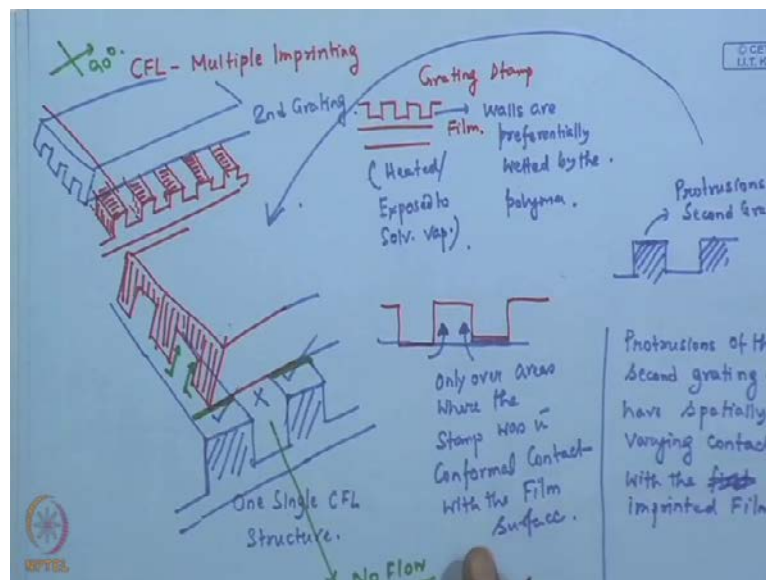 90°.
CFL - Multiple Imprinting
2nd Grating.
Grating Stamp
Film.
Walls are
preferentially
wetted by the.
polymer.
(Heated/
Exposed to
Solv. vap.)
© CE
I.I.T. K
Protrusions
Second Gra
Only over areas
where the
Stamp was in
Conformal Contact
with the Film
Surface.
Protrusions of th
Second grating
have Spatially
Varying Contac
with the
imprinted Film
X
One Single CFL
Structure.
No Flow
NPTEL